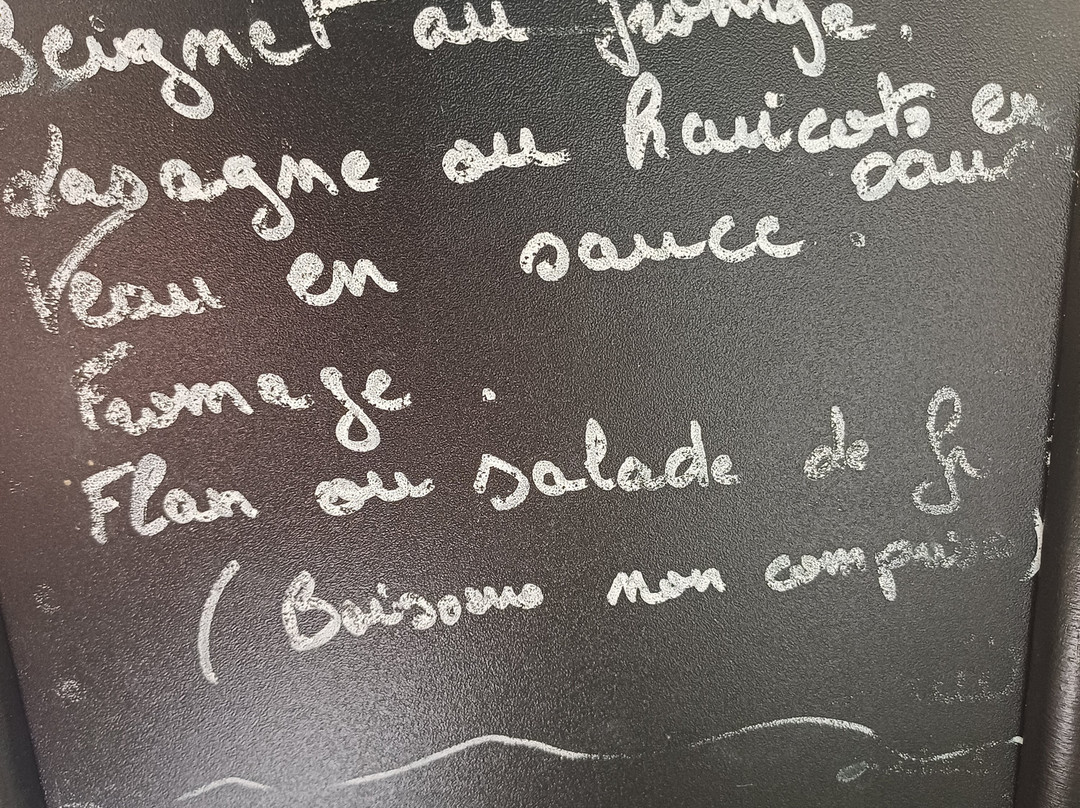 Beignet au fromage.
Lasagne ou haricots en
sau
Veau en sauce.
Fromage.
Flan ou salade de fr
(Boissons non comprises)